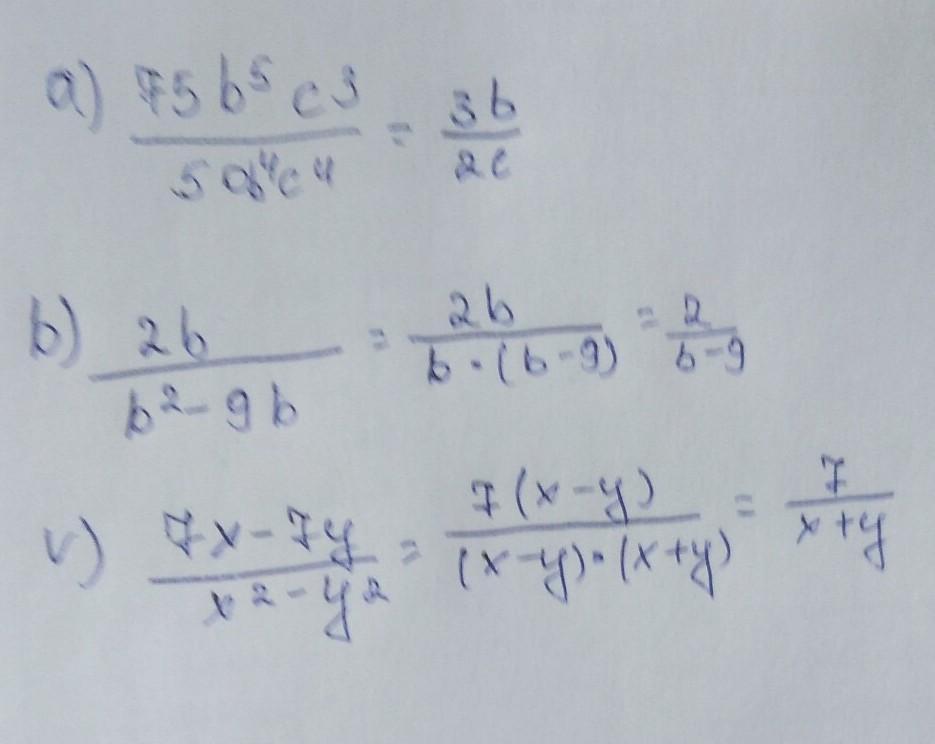 a) 75b⁵c³ / 50b⁴c⁴ = 3b / 2c
b) 2b / b²-9b = 2b / b·(b-9) = 2 / b-9
v) 7x-7y / x²-y² = 7(x-y) / (x-y)·(x+y) = 7 / x+y